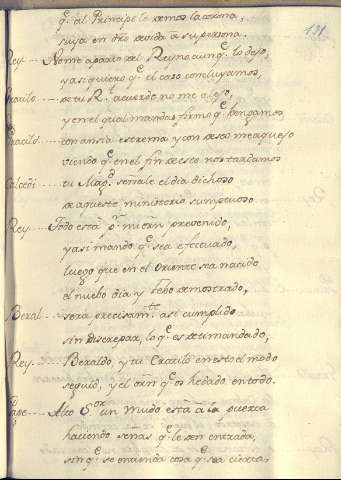 191
q.e al Principe le demos la corona,
suya en dro devida a su persona.
Rey --- No me aparto del Reyno aunq.e lo dejo,
y asi quiero q.e el caso concluyamos,
Cratilo --- de tu R.l acuerdo no me alejo,
y en el qual mandas firmo q.e hengamos,
con ansia estrema y con deseo me aquejo
viendo q.e en el fin de esto nos tardamos
tu Mag.d señale el dia dichoso
de aqueste ministerio sumptuoso
Rey --- Todo está p.r mi orñ prevenido,
y asi mando q.e sea efectuado,
luego que en el oriente sea nacido
el nuebo dia y Febo demostrado,
Beral --- sera precisam.te asi cumplido
sin discrepar, lo q.e es de ti mandado,
Rey --- Beraldo, y tu Cratilo en esto el modo
seguid, y el orñ q.e os he dado en todo.
Page --- Alto S.or un mudo está a la puerta
haciendo señas q.e le den entrada,
sin q.e se entienda cosa q.e sea cierta,